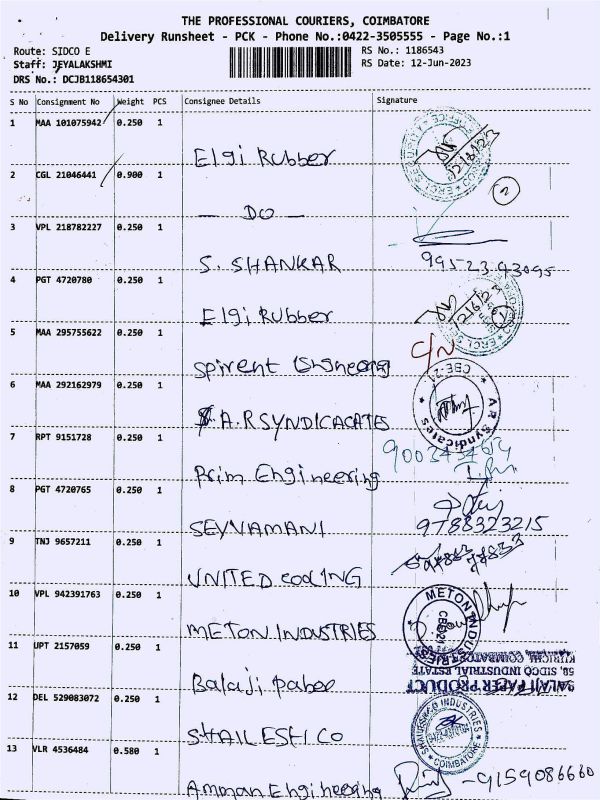 THE PROFESSIONAL COURIERS, COIMBATORE
Delivery Runsheet - PCK - Phone No.:0422-3505555 - Page No.:1
Route: SIDCO E
RS No.: 1186543
Staff: JEYALAKSHMI
RS Date: 12-Jun-2023
DRS No.: DCJB118654301
S No Consignment No Weight PCS Consignee Details Signature
1 MAA 101075942 0.250 1
Elgi Rubber
12/6/23
2 CGL 21046441 0.900 1
2
— DO —
3 VPL 218782227 0.250 1
S. SHANKAR
99523 43095
4 PGT 4720780 0.250 1
Elgi Rubber
12/6/23
5 MAA 295755622 0.250 1
C/N
Spirent Engineering
6 MAA 292162979 0.250 1
A.R SYNDICACATES
A.R Syndicates
CBE-21
7 RPT 9151728 0.250 1
Prim Engineering
8 PGT 4720765 0.250 1
SELVAMANI
9788323215
9 TNJ 9657211 0.250 1
UNITED COOLING
10 VPL 942391763 0.250 1
METON INDUSTRIES
METON INDUSTRIES
CBE-21
11 UPT 2157059 0.250 1
Balaji paber
BALAJI PAPER PRODUCT
59, SIDCO INDUSTRIAL ESTATE
KURICHI, COIMBATORE
12 DEL 529083072 0.250 1
SHAILESH CO
INDUSTRIES
COIMBATORE
13 VLR 4536484 0.580 1
Amman Engineering
-9159086660